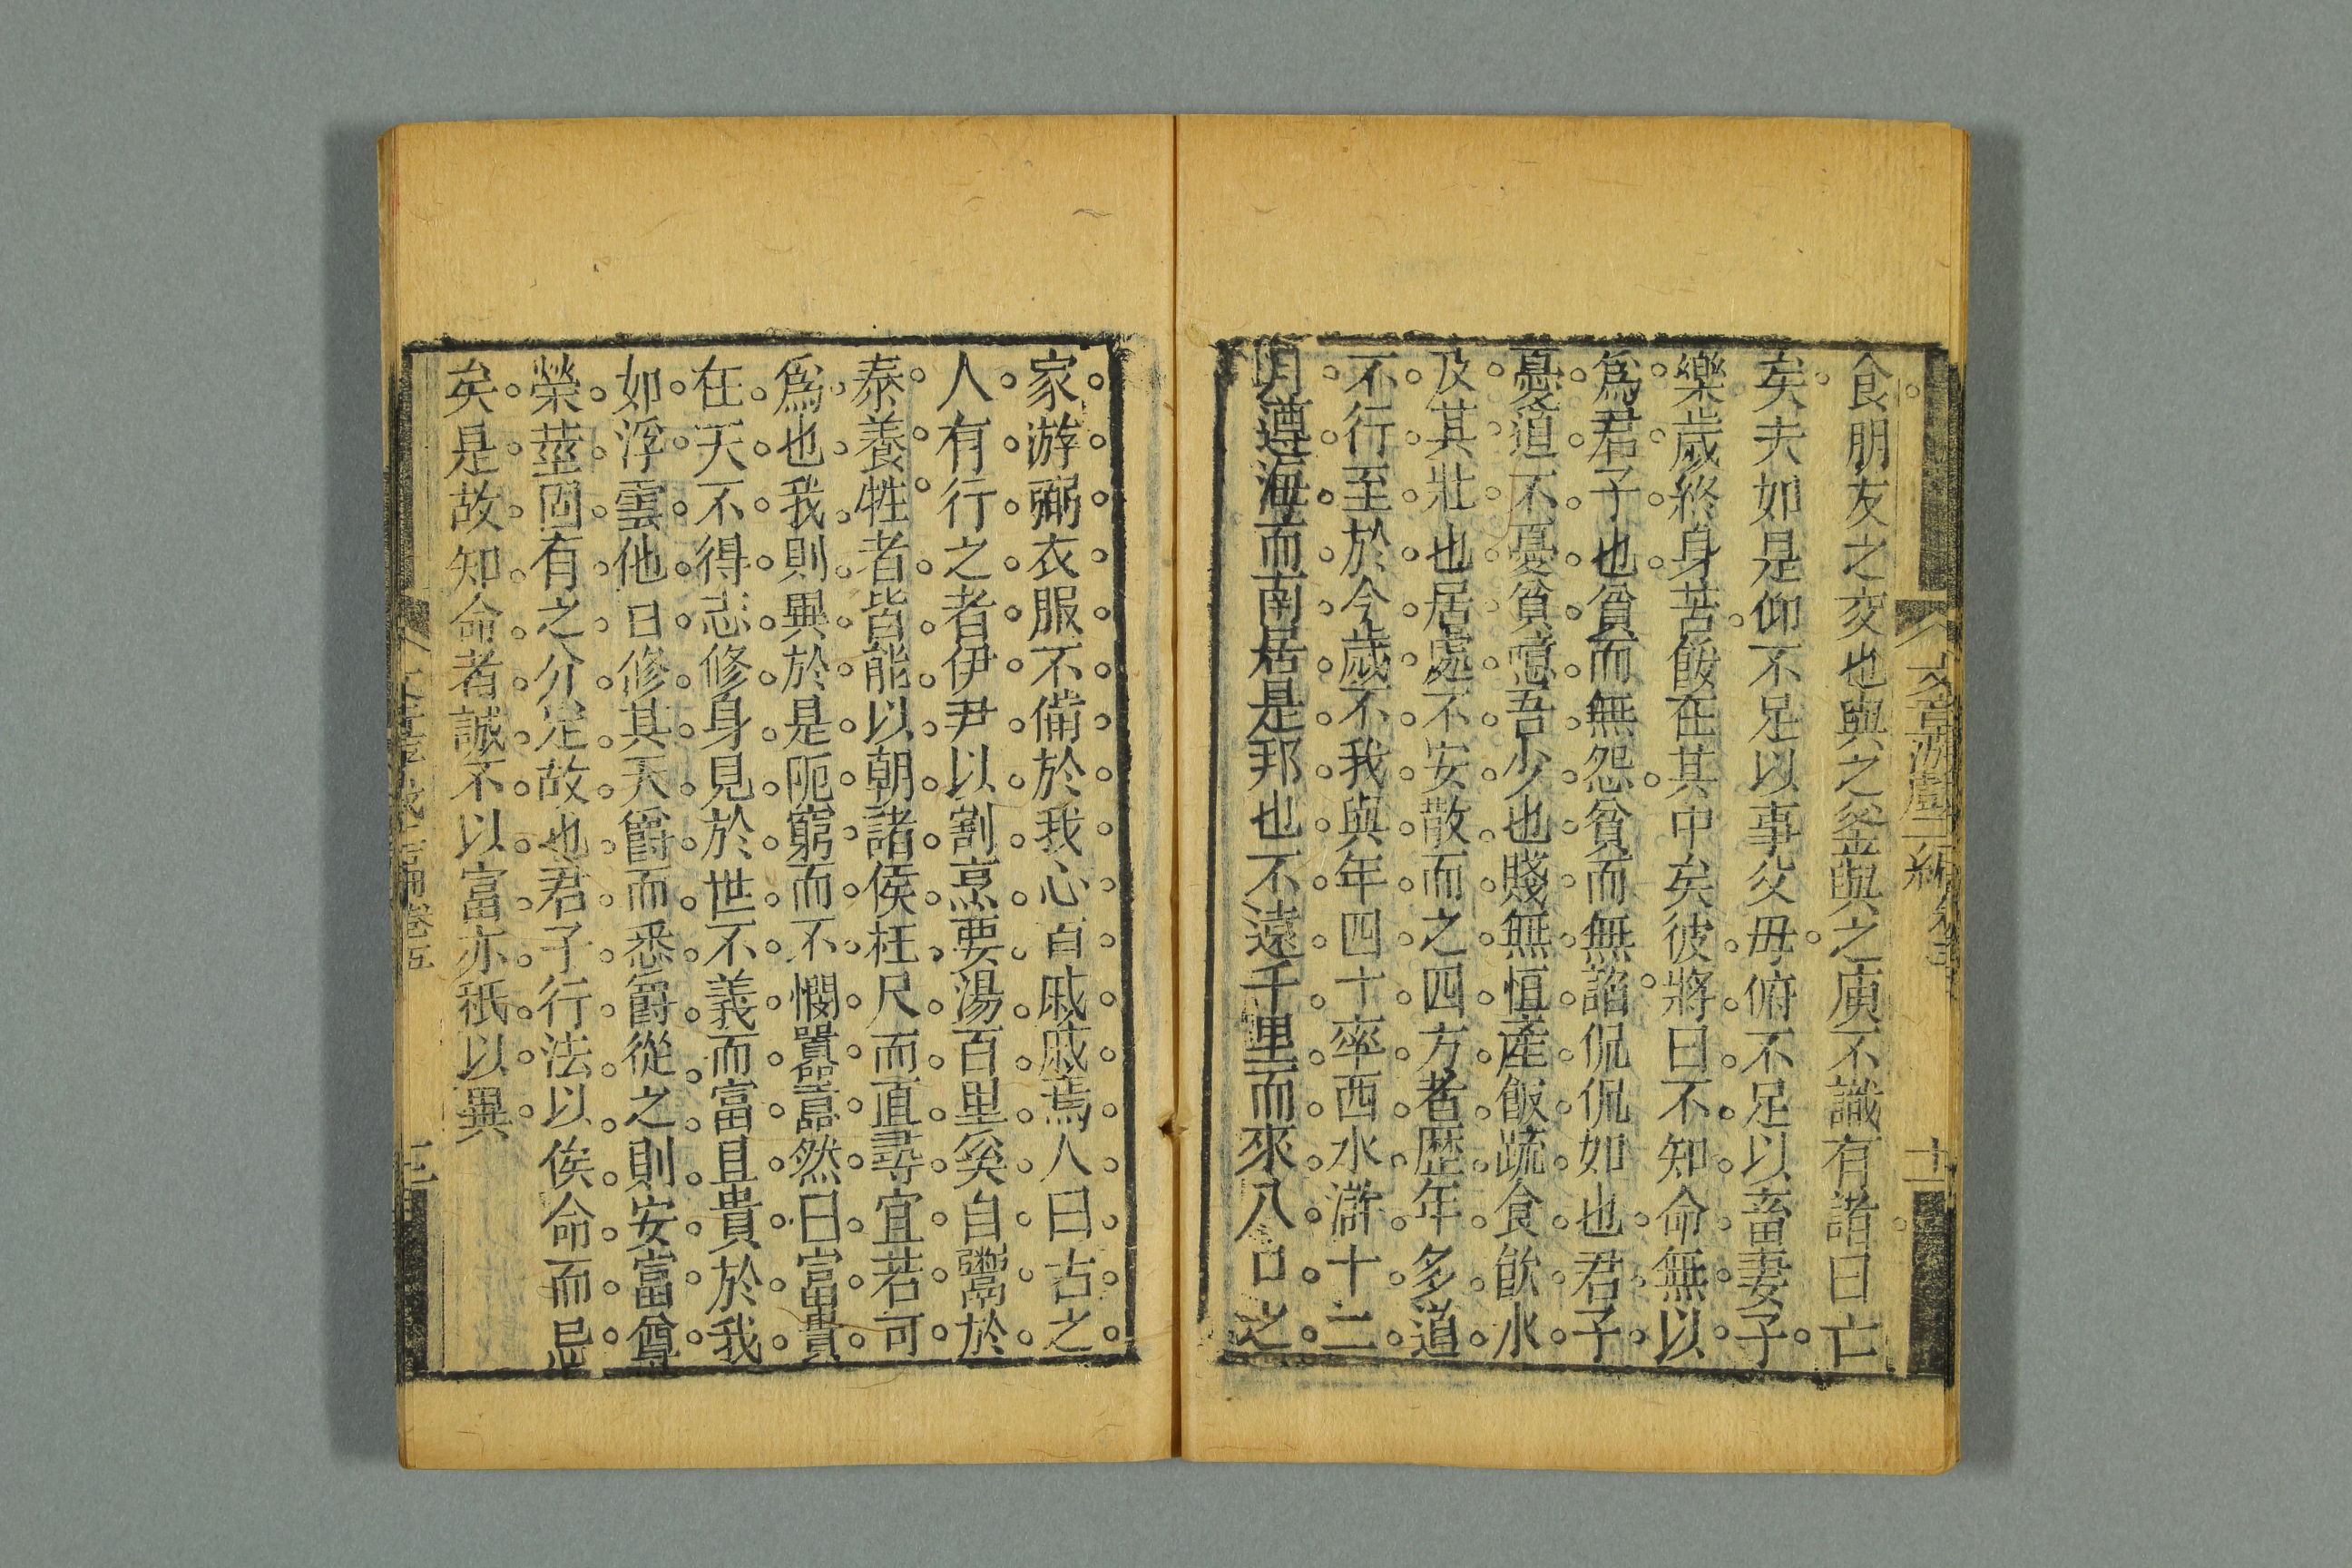 文章游戲二編卷五
十二
食朋友之交也與之釜與之庾不識有諸曰亡
矣夫如是仰不足以事父毋俯不足以畜妻子
樂歲終身苦餒在其中矣彼將曰不知命無以
爲君子也貧而無怨貧而無諂侃侃如也君子
憂道不憂貧噫吾少也賤無恒產飯蔬食飲水
及其壯也居處不安散而之四方者歷年多道
不行至於今歲不我與年四十率西水滸十二
月遵海而南居是邦也不遠千里而來八口之
家游弼衣服不備於我心有戚戚焉人曰古之
人有行之者伊尹以割烹要湯百里奚自鬻於
秦養牲者皆能以朝諸侯枉尺而直尋宜若可
爲也我則異於是阨窮而不憫囂囂然曰富貴
在天不得志修身見於世不義而富且貴於我
如浮雲他日修其天爵而悉爵從之則安富尊
榮莖固有之分定故也君子行法以俟命而已
矣是故知命者誠不以富亦祇以異
卷五